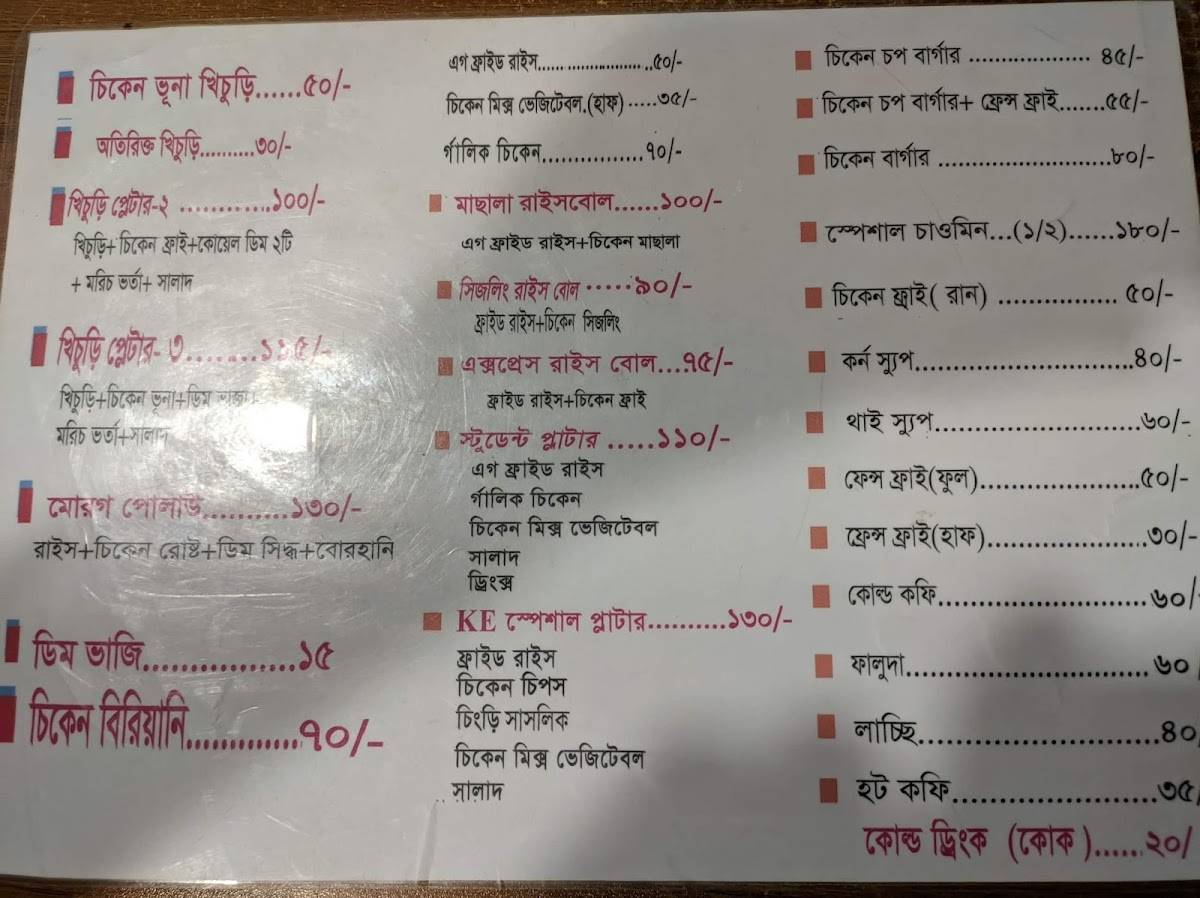 চিকেন ভূনা খিচুড়ি......৫০/-
অতিরিক্ত খিচুড়ি..........৩০/-
খিচুড়ি প্লেটার-২ .............১০০/-
খিচুড়ি+চিকেন ফ্রাই+কোয়েল ডিম ২টি
+ মরিচ ভর্তা+ সালাদ
খিচুড়ি প্লেটার- ৩........১১৫/-
খিচুড়ি+চিকেন ভূনা+ডিম ভাজা+
মরিচ ভর্তা+সালাদ
মোরগ পোলাউ..........১৩০/-
রাইস+চিকেন রোষ্ট+ডিম সিদ্ধ+বোরহানি
ডিম ভাজি.................১৫
চিকেন বিরিয়ানি.............৭০/-
এগ ফ্রাইড রাইস..........................৫০/-
চিকেন মিক্স ভেজিটেবল.(হাফ)......৩৫/-
গার্লিক চিকেন.................৭০/-
মাছালা রাইসবোল......১০০/-
এগ ফ্রাইড রাইস+চিকেন মাছালা
সিজলিং রাইস বোল ......৯০/-
ফ্রাইড রাইস+চিকেন সিজলিং
এক্সপ্রেস রাইস বোল...৭৫/-
ফ্রাইড রাইস+চিকেন ফ্রাই
স্টুডেন্ট প্লাটার .....১১০/-
এগ ফ্রাইড রাইস
গার্লিক চিকেন
চিকেন মিক্স ভেজিটেবল
সালাদ
ড্রিংক্স
KE স্পেশাল প্লাটার..........১৩০/-
ফ্রাইড রাইস
চিকেন চিপস
চিংড়ি সাসলিক
চিকেন মিক্স ভেজিটেবল
সালাদ
চিকেন চপ বার্গার .................... ৪৫/-
চিকেন চপ বার্গার+ ফ্রেন্স ফ্রাই.......৫৫/-
চিকেন বার্গার ............................৮০/-
স্পেশাল চাওমিন...(১/২)......১৮০/-
চিকেন ফ্রাই( রান) ................. ৫০/-
কর্ন স্যুপ..............................৪০/-
থাই স্যুপ............................৬০/-
ফেন্স ফ্রাই(ফুল)......................৫০/-
ফ্রেন্স ফ্রাই(হাফ)......................৩০/-
কোল্ড কফি.............................৬০/-
ফালুদা.................................৬০
লাচ্ছি.................................৪০
হট কফি............................৩৫
কোল্ড ড্রিংক (কোক )......২০/